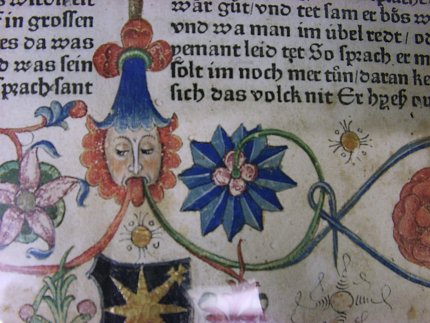 in grossen
es da was
d was sein
sprach sant
wär gůt/vnd tet sam er bös w
vnd wa man im übel redt/od
yemant leid tet So sprach er m
solt im noch mer tůn/daran ke
sich das volck nit Er hyeß qu